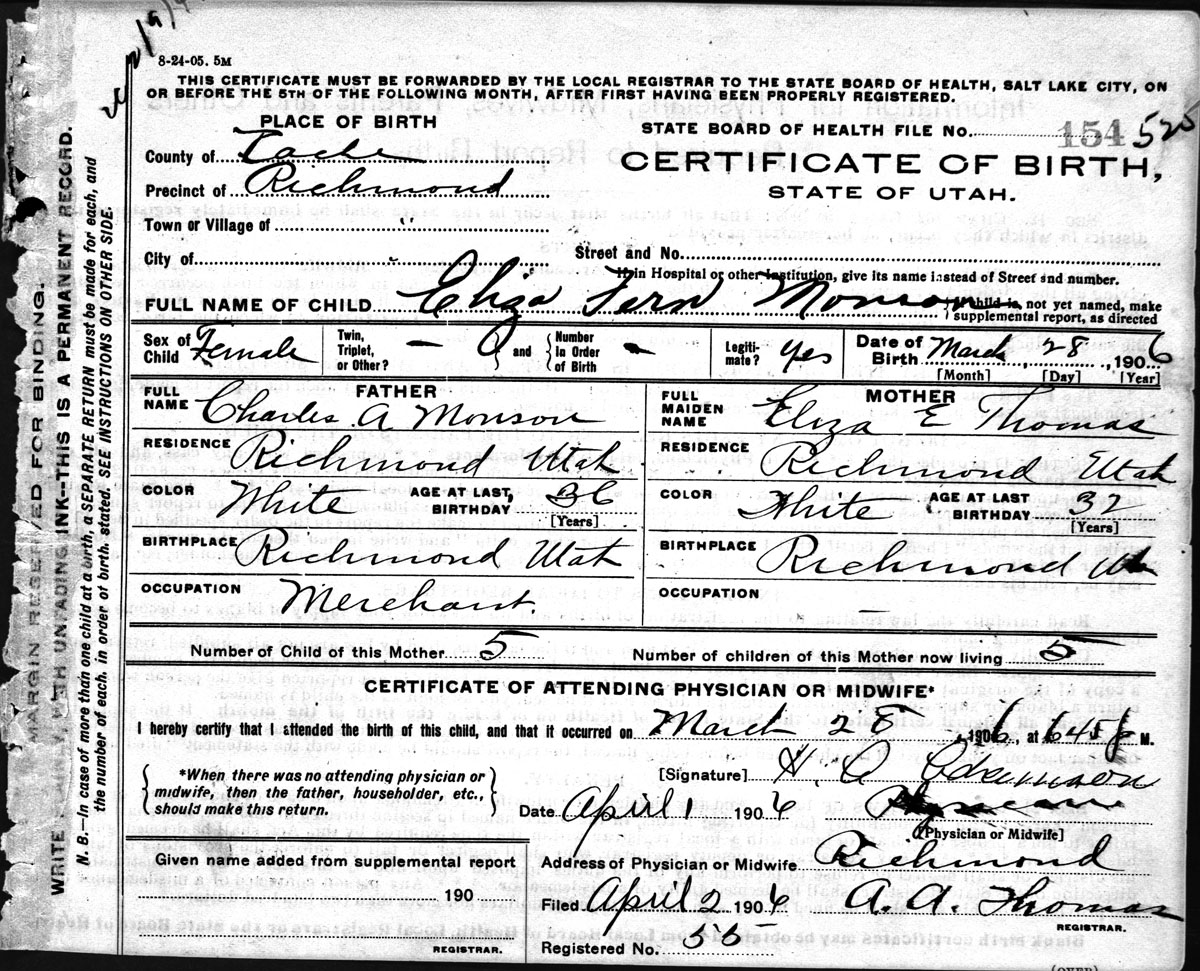 8-24-05. 5M
THIS CERTIFICATE MUST BE FORWARDED BY THE LOCAL REGISTRAR TO THE STATE BOARD OF HEALTH, SALT LAKE CITY, ON
OR BEFORE THE 5TH OF THE FOLLOWING MONTH, AFTER FIRST HAVING BEEN PROPERLY REGISTERED.
MARGIN RESERVED FOR BINDING.
WRITE PLAINLY WITH UNFADING INK--THIS IS A PERMANENT RECORD.
N. B.--In case of more than one child at a birth, a SEPARATE RETURN must be made for each, and
the number of each, in order of birth, stated. SEE INSTRUCTIONS ON OTHER SIDE.
PLACE OF BIRTH
County of Cache
Precinct of Richmond
Town or Village of "
City of "
STATE BOARD OF HEALTH FILE No. 154 525
CERTIFICATE OF BIRTH,
STATE OF UTAH.
Street and No.
If in Hospital or other Institution, give its name instead of Street and number.
FULL NAME OF CHILD Eliza Fern Monson
If child is not yet named, make
supplemental report, as directed
Sex of Child Female
Twin, Triplet, or Other? — and Number in Order of Birth —
Legiti-mate? yes
Date of Birth March 28, 1906
[Month] [Day] [Year]
FATHER
FULL NAME Charles A Monson
RESIDENCE Richmond Utah
COLOR White AGE AT LAST BIRTHDAY 36
[Years]
BIRTHPLACE Richmond Utah
OCCUPATION Merchant.
MOTHER
FULL MAIDEN NAME Eliza E Thomas
RESIDENCE Richmond Utah
COLOR White AGE AT LAST BIRTHDAY 32
[Years]
BIRTHPLACE Richmond Ut
OCCUPATION —
Number of Child of this Mother 5
Number of children of this Mother now living 5
CERTIFICATE OF ATTENDING PHYSICIAN OR MIDWIFE*
I hereby certify that I attended the birth of this child, and that it occurred on March 28, 1906, at 645 P M.
*When there was no attending physician or
midwife, then the father, householder, etc.,
should make this return.
[Signature] W. O. Adamson
Date April 1 1906 Physician
[Physician or Midwife]
Given name added from supplemental report
190
REGISTRAR.
Address of Physician or Midwife Richmond
Filed April 2 1906 A. A. Thomas
REGISTRAR.
Registered No. 55
(OVER)